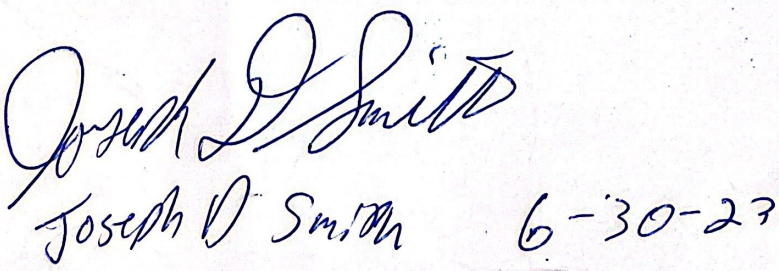 Joseph D Smith
Joseph D Smith 6-30-23